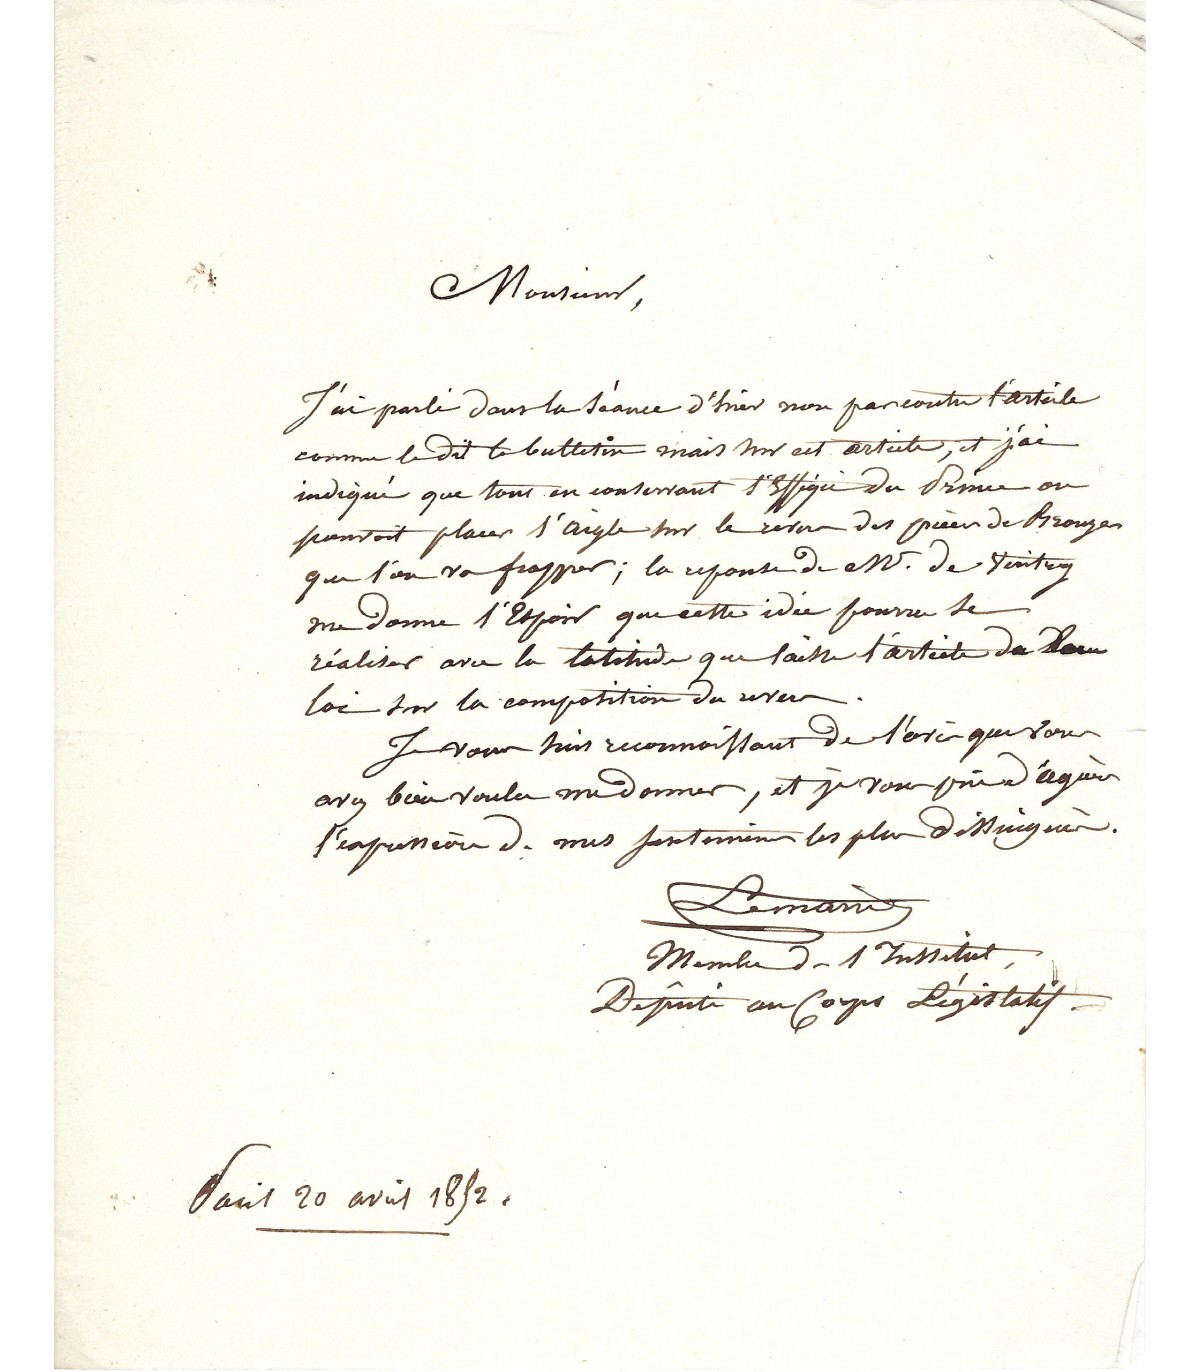 Monsieur,
J'ai parlé dans la séance d'hier non pas contre l'article
comme le dit le bulletin mais sur cet article, et j'ai
indiqué que tout en conservant l'Effigie du Prince on
pourroit placer l'aigle sur le revers des pièces de Bronze
que l'on va frapper ; la reponse de Mr. de
me donne l'Espoir que cette idée pourra se
réaliser avec la latitude que laisse l'article de la
loi sur la composition du revers.
Je vous suis reconnoissant de l'avis que vous
avez bien voulu me donner, et je vous prie d'agréer
l'expression de mes sentimens les plus distingués.
Lemaire
Membre de l'Institut,
Député au Corps Législatif.
Paris 20 avril 1852.